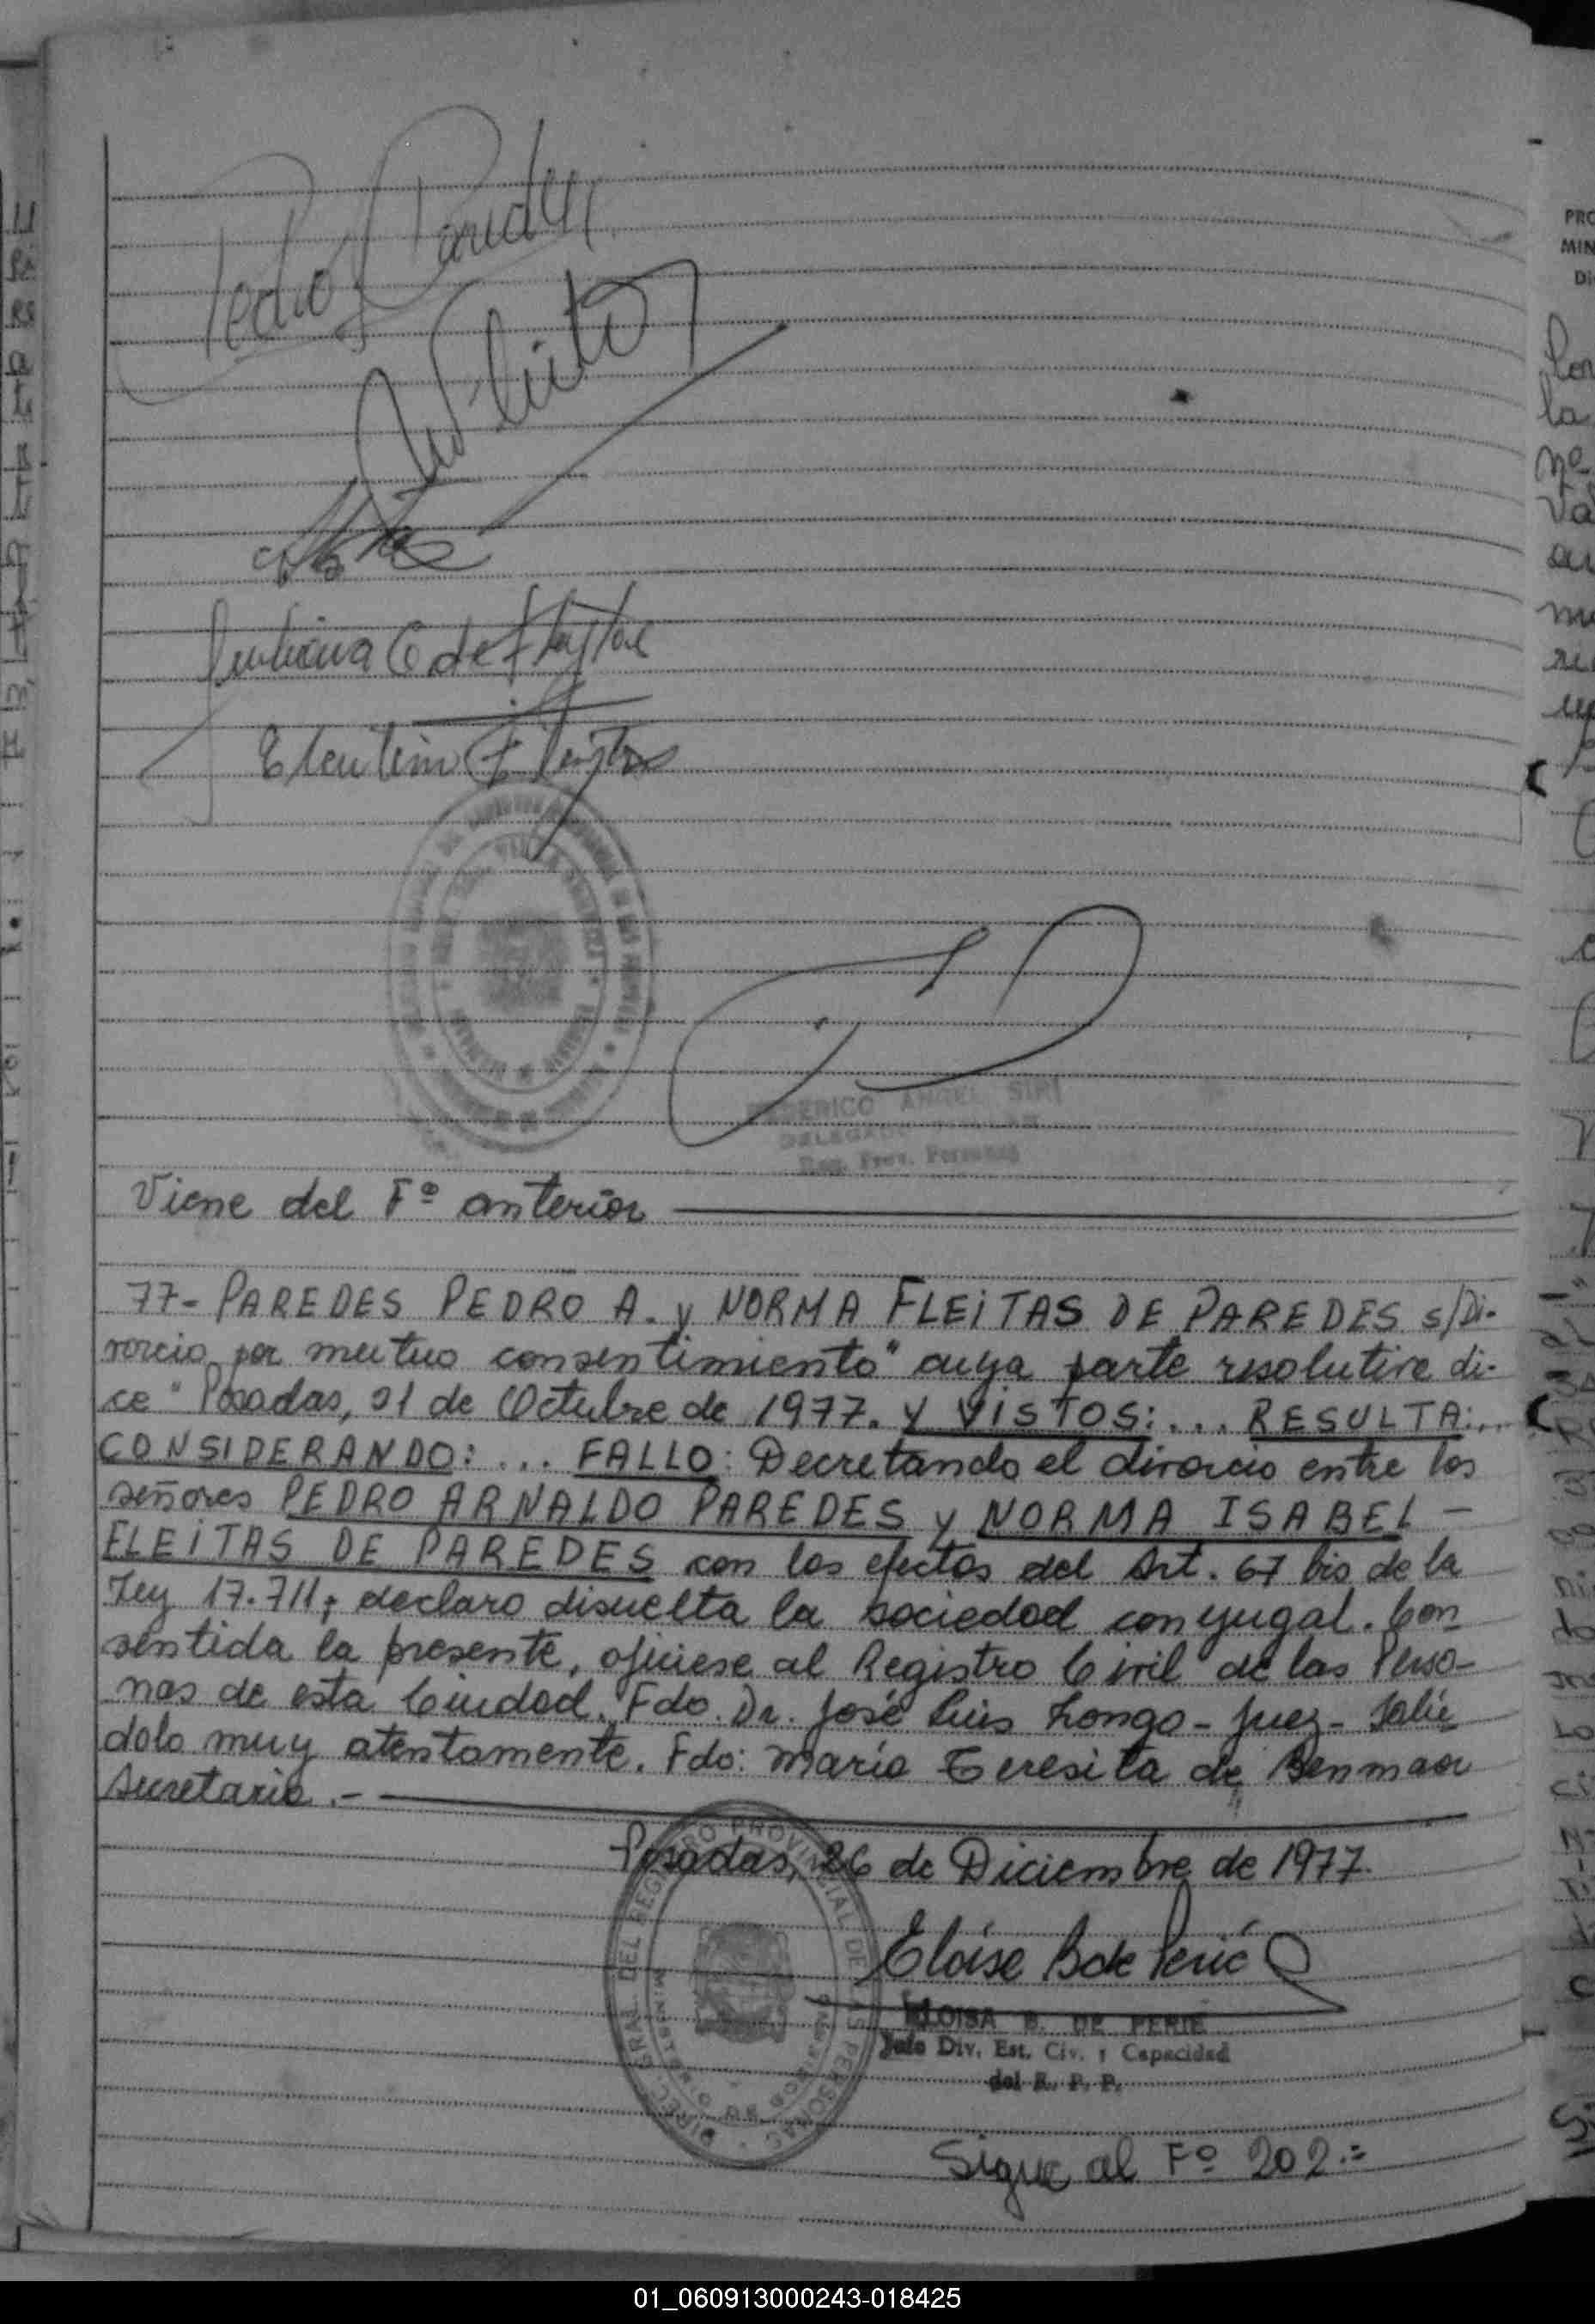 Pedro Paredes
Viene del Fº anterior
77- PAREDES PEDRO A. y NORMA FLEiTAS DE PAREDES s/Di-
vorcio por mutuo consentimiento" cuya parte resolutiva di-
ce "Posadas, 31 de Octubre de 1977. Y VISTOS:... RESULTA:..
CONSIDERANDO: ... FALLO: Decretando el divorcio entre los
señores PEDRO ARNALDO PAREDES y NORMA ISABEL -
FLEiTAS DE PAREDES con los efectos del Art. 67 bis de la
Ley 17.711; declaro disuelta la sociedad conyugal. Con
sentida la presente, ofíciese al Registro Civil de las Perso-
nas de esta Ciudad. Fdo. Dr. José Luis Longo - Juez - Salú
dolo muy atentamente. Fdo: María Teresita de Benmaor
Secretaria.-
Posadas, 26 de Diciembre de 1977.
Eloisa B de Perié
ELOISA B. DE PERIE
Jefe Div. Est. Civ. y Capacidad
del R. P. P.
DIREC. GRAL. DEL REGISTRO PROVINCIAL DE LAS PERSONAS
FEDERICO ANGEL SIRI
DELEGADO
Reg. Prov. Personas
Sigue al Fº 202.=
01_060913000243-018425